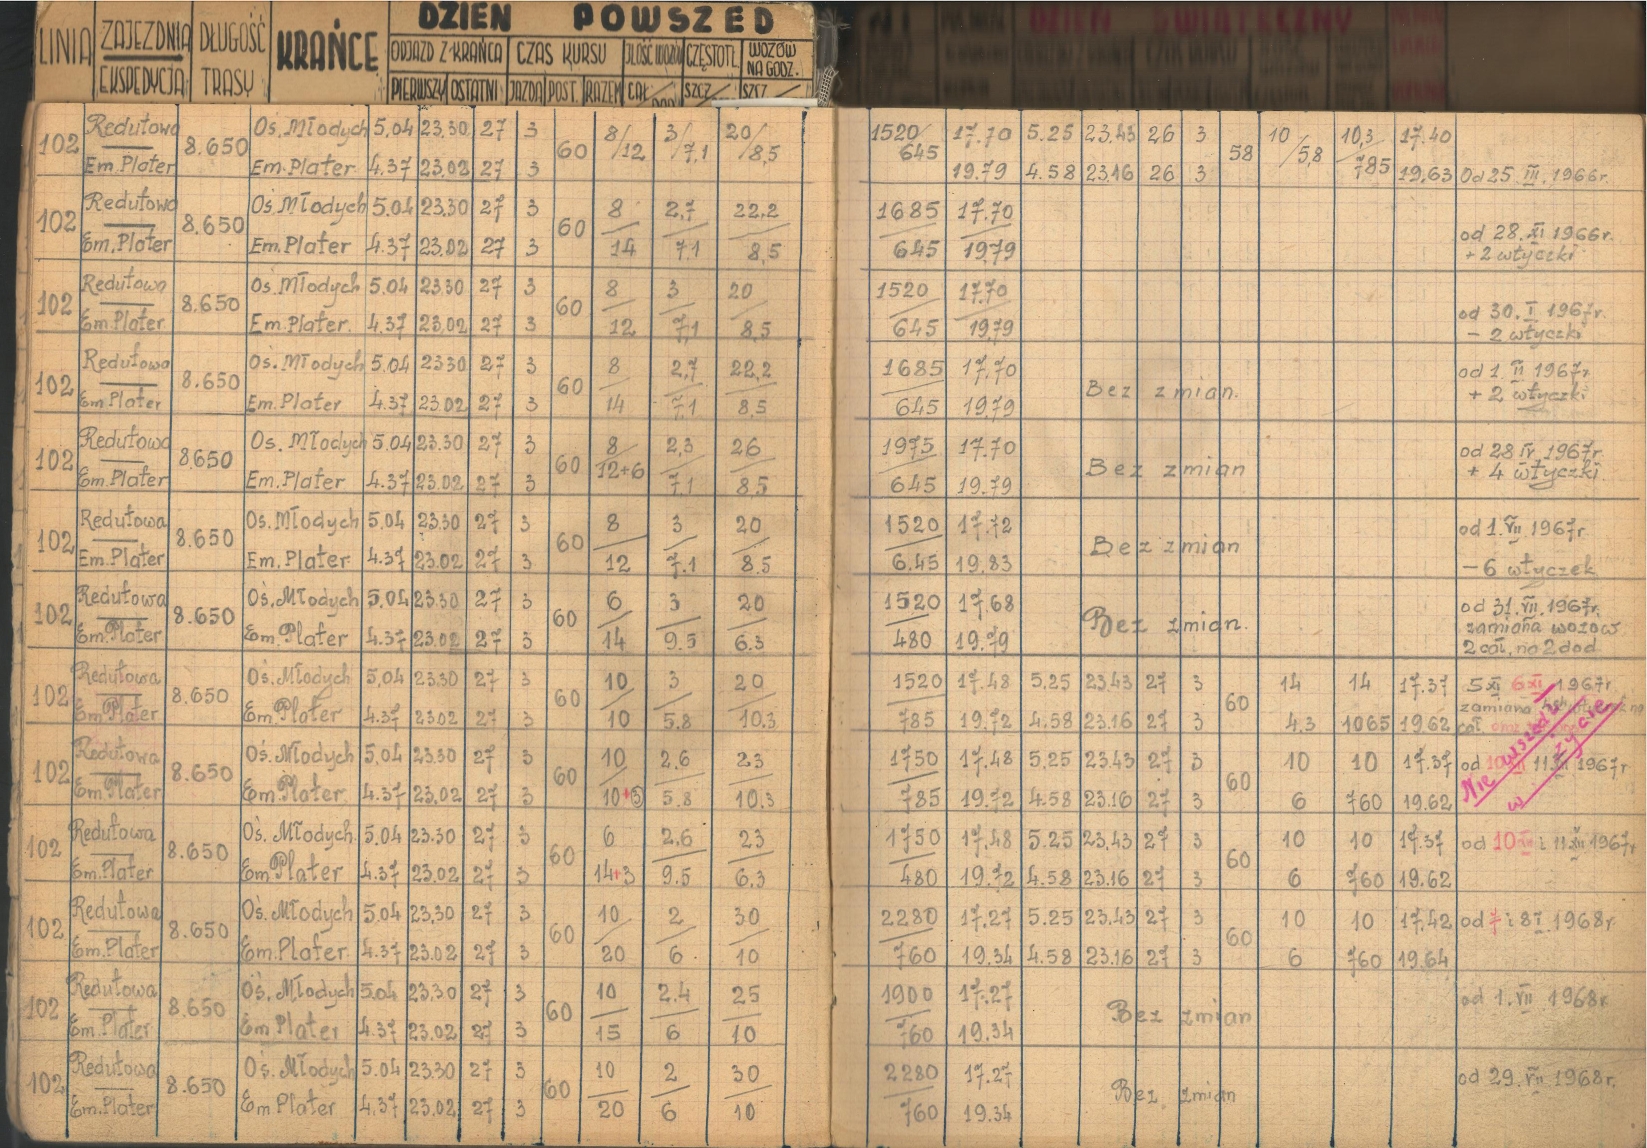 LINIA ZAJEZDNIA EKSPEDYCJA DŁUGOŚĆ TRASY KRAŃCE
DZIEŃ POWSZED
ODJAZD Z KRAŃCA CZAS KURSU ILOŚĆ WOZÓW CZĘSTOTL. WOZÓW NA GODZ.
PIERWSZY OSTATNI JAZDA POST. RAZEM CAŁ/DOD SZCZ SZCZ
DZIEŃ ŚWIĄTECZNY
102 Redutowa 8.650 Oś. Młodych 5.04 23.30 27 3 60 8/12 3/7,1 20/8,5 1520/645 17.70 5.25 23.43 26 3 58 10/5,8 10,3/785 17.40
Em. Plater Em. Plater 4.37 23.02 27 3 19.79 4.58 23.16 26 3 19,63 Od 25.III.1966r.
102 Redutowa 8.650 Oś. Młodych 5.04 23.30 27 3 60 8 2,7 22,2 1685 17.70
Em. Plater Em. Plater 4.37 23.02 27 3 14 7,1 8,5 645 19,79 od 28.XI 1966r.
+ 2 wtyczki
102 Redutowa 8.650 Oś. Młodych 5.04 23.30 27 3 60 8 3 20 1520 17.70
Em. Plater Em. Plater. 4.37 23.02 27 3 12 7,1 8,5 645 19,79 od 30.I.1967r.
- 2 wtyczki
102 Redutowa 8.650 Oś. Młodych 5.04 23.30 27 3 60 8 2,7 22,2 1685 17.70 Bez zmian. od 1.II 1967r.
Em. Plater Em. Plater 4.37 23.02 27 3 14 7,1 8,5 645 19,79 + 2 wtyczki
102 Redutowa 8.650 Oś. Młodych 5.04 23.30 27 3 60 8 2,3 26 1975 17.70 Bez zmian od 28 IV.1967r.
Em. Plater Em. Plater 4.37 23.02 27 3 12+6 7,1 8,5 645 19.79 + 4 wtyczki
102 Redutowa 8.650 Oś. Młodych 5.04 23.30 27 3 60 8 3 20 1520 17.72 Bez zmian od 1.VII 1967r.
Em. Plater Em. Plater 4.37 23.02 27 3 12 7.1 8.5 6.45 19.83 - 6 wtyczek
102 Redutowa 8.650 Oś. Młodych 5.04 23.30 27 3 60 6 3 20 1520 17.68 Bez zmian. od 31.VII.1967r.
Em. Plater Em. Plater 4.37 23.02 27 3 14 9.5 6.3 480 19.79 zamiana wozów
2 cał. na 2 dod
102 Redutowa 8.650 Oś. Młodych 5,04 23.30 27 3 60 10 3 20 1520 17.48 5,25 23.43 27 3 60 14 14 17.37 5 XI 6 XI 1967r.
Em. Plater Em. Plater 4.37 23.02 27 3 10 5.8 10.3 785 19.72 4.58 23.16 27 3 4.3 1065 19.62 zamiana na
cał.
102 Redutowa 8.650 Oś. Młodych 5,04 23.30 27 3 60 10 2.6 23 1750 17.48 5.25 23.43 27 3 60 10 10 17.37 od 10 XII 11 XII 1967r.
Em. Plater Em. Plater. 4.37 23.02 27 3 10+3 5.8 10.3 785 19.72 4.58 23.16 27 3 6 760 19.62
Nie wszedł
w życie
102 Redutowa 8.650 Oś. Młodych 5.04 23.30 27 3 60 6 2,6 23 1750 17.48 5.25 23.43 27 3 60 10 10 17.37 od 10 XII i 11 XII 1967r.
Em. Plater Em Plater 4.37 23.02 27 3 14+3 9.5 6.3 480 19.72 4.58 23.16 27 3 6 760 19.62
102 Redutowa 8.650 Oś. Młodych 5.04 23.30 27 3 60 10 2 30 2280 17.27 5.25 23.43 27 3 60 10 10 17.42 od 7 i 8 I.1968r.
Em. Plater Em. Plater 4.37 23.02 27 3 20 6 10 760 19.34 4.58 23.16 27 3 6 760 19.64
102 Redutowa 8.650 Oś. Młodych 5.04 23.30 27 3 60 10 2.4 25 1900 17.27 Bez zmian od 1.VII 1968r.
Em. Plater Em Plater 4.37 23.02 27 3 15 6 10 760 19.34
102 Redutowa 8.650 Oś. Młodych 5.04 23.30 27 3 60 10 2 30 2280 17.27 Bez zmian od 29.VII 1968r.
Em. Plater Em Plater 4.37 23.02 27 3 20 6 10 760 19.34